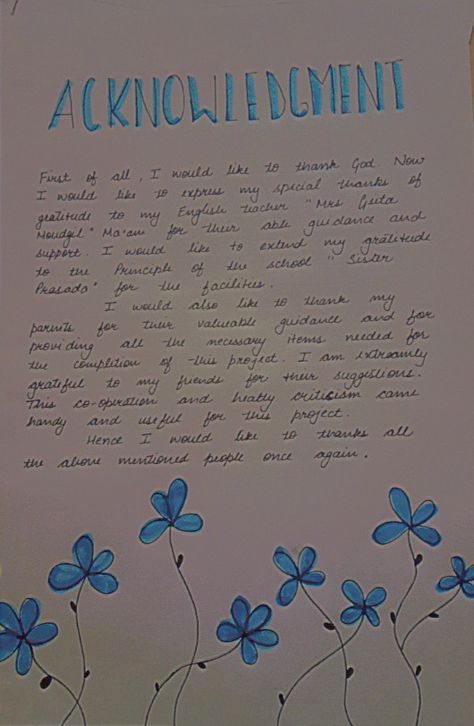 ACKNOWLEDGMENT
First of all, I would like to thank God. Now
I would like to express my special thanks of
gratitude to my English teacher "Mrs Geeta
Moudgil" Ma'am for their able guidance and
support. I would like to extend my gratitude
to the Principle of the school "Sister
Prasada" for the facilities.
I would also like to thank my
parents for their valuable guidance and for
providing all the necessary items needed for
the complition of this project. I am extreamly
grateful to my friends for their suggestions.
This co-opration and healty criticism came
handy and useful for this project.
Hence I would like to thanks all
the above mentioned people once again.